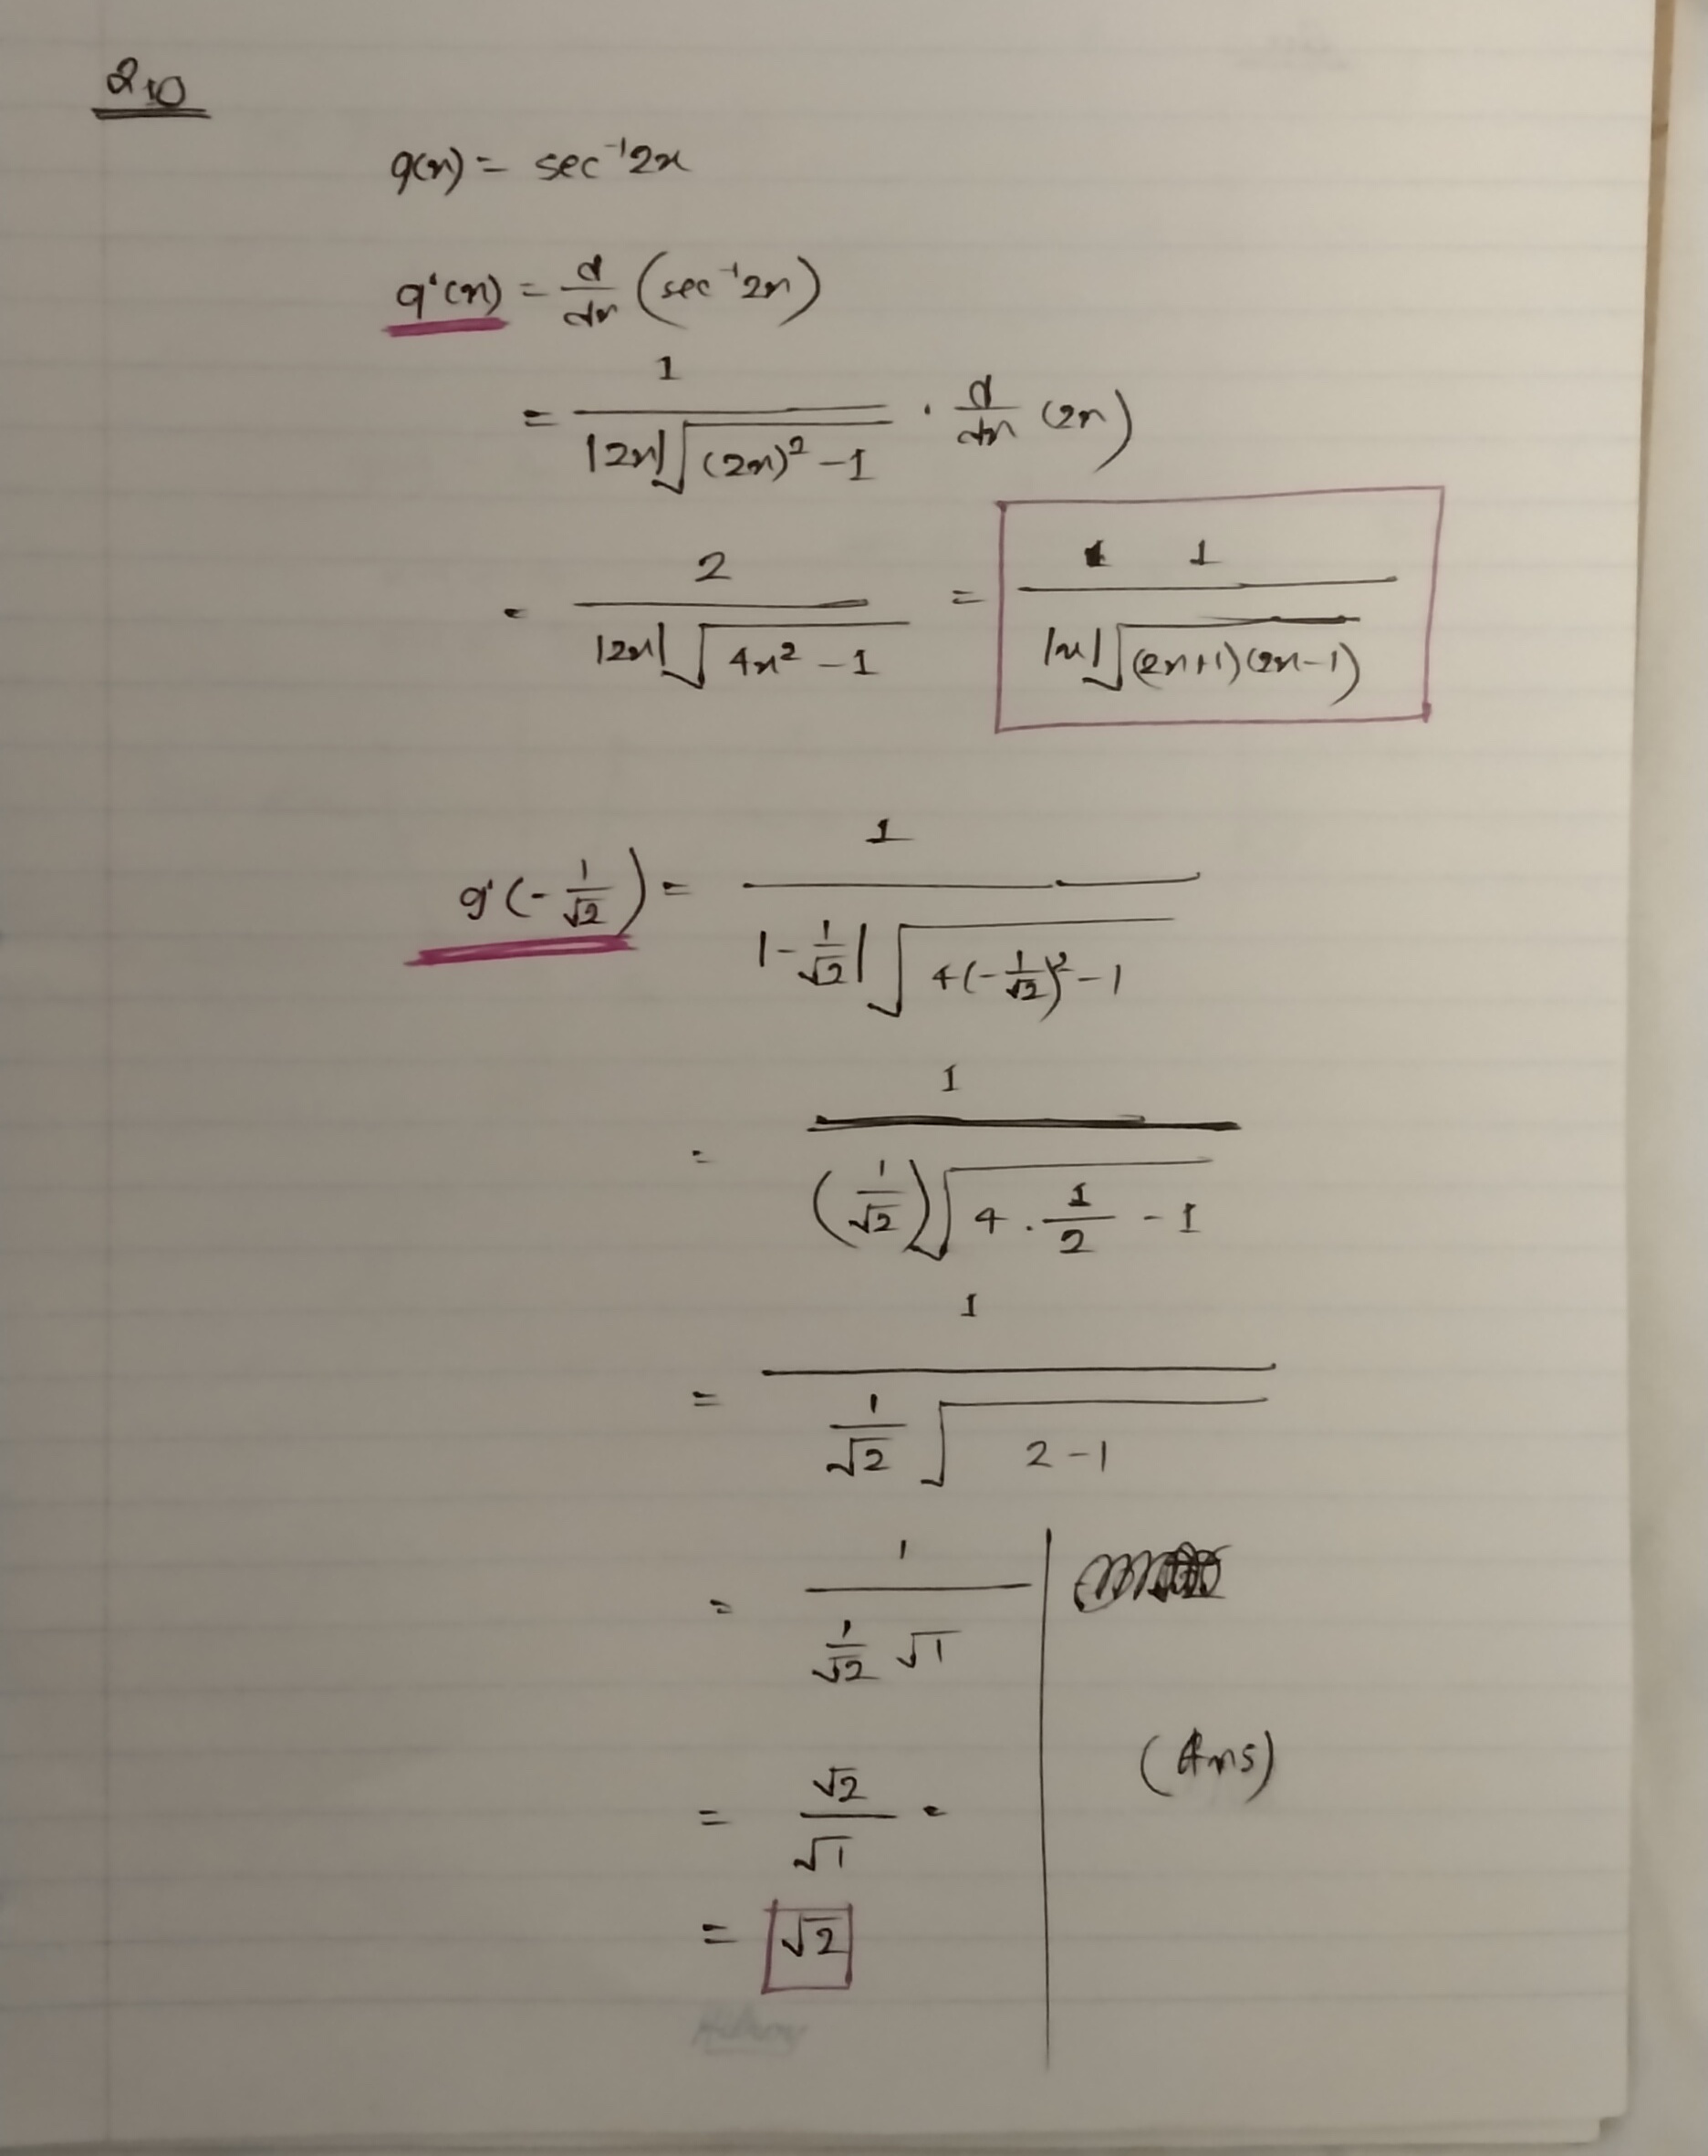 2.10
g(x) = sec⁻¹2x
g'(x) = d/dx (sec⁻¹2x)
= 1/(|2x|√((2x)² - 1)) · d/dx (2x)
= 2/(|2x|√(4x² - 1)) = 1/(|x|√((2x+1)(2x-1)))
g'(-1/√2) = 1/(|-1/√2|√(4(-1/√2)² - 1))
= 1/((1/√2)√(4 · 1/2 - 1))
= 1/(1/√2 √(2 - 1))
= 1/(1/√2 √1)
= √2/√1
(Ans)
= √2